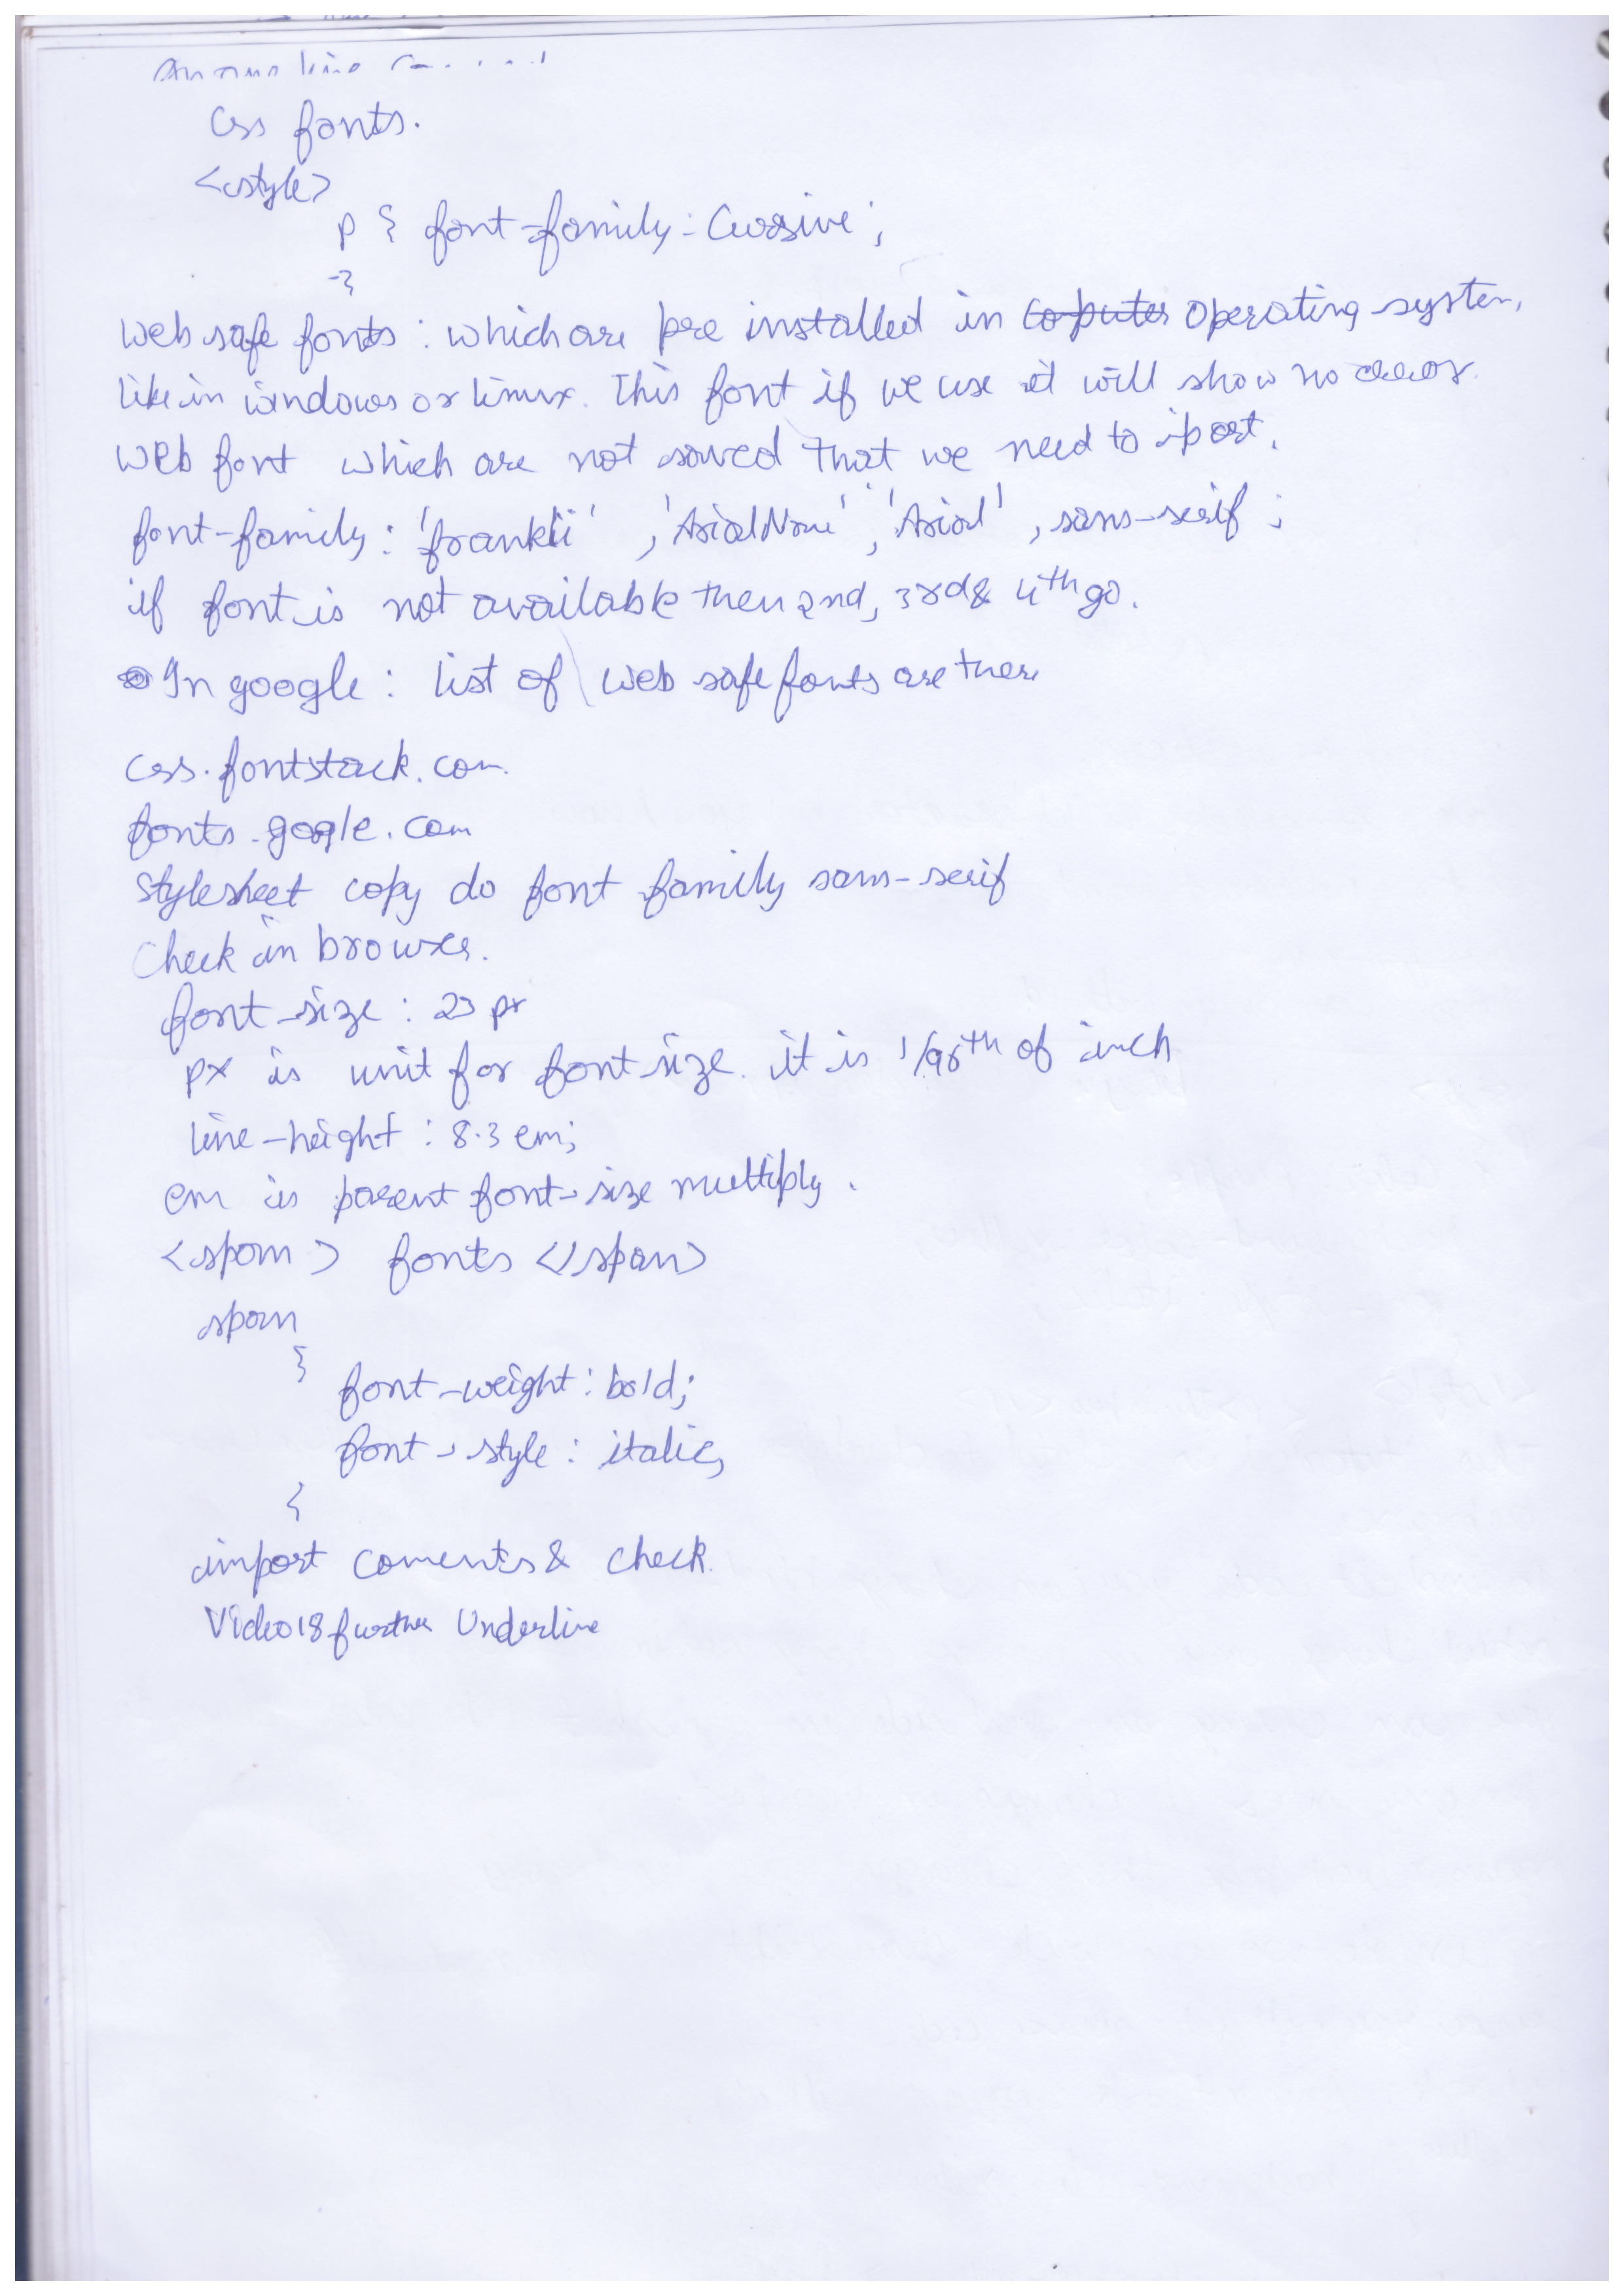 Css fonts.
<style>
p { font-family: Cursive;
}
web safe fonts : which are pre installed in computer operating system,
like in windows or linux. This font if we use it will show no error.
web font which are not saved that we need to iport.
font-family: 'frankli', 'ArialNarow', 'Arial', sans-serif;
if font is not available then 2nd, 3rd & 4th go.
In google: list of web safe fonts are there
css.fontstack.com
fonts.google.com
stylesheet copy do font family sans-serif
Check in browser.
font-size : 23 px
px is unit for font size. it is 1/96th of inch
line-height : 8.3 em;
em is parent font-size multiply.
<span> fonts </span>
span
}
font-weight: bold;
font-style: italic;
{
import coments & check.
Video 18 further Underline